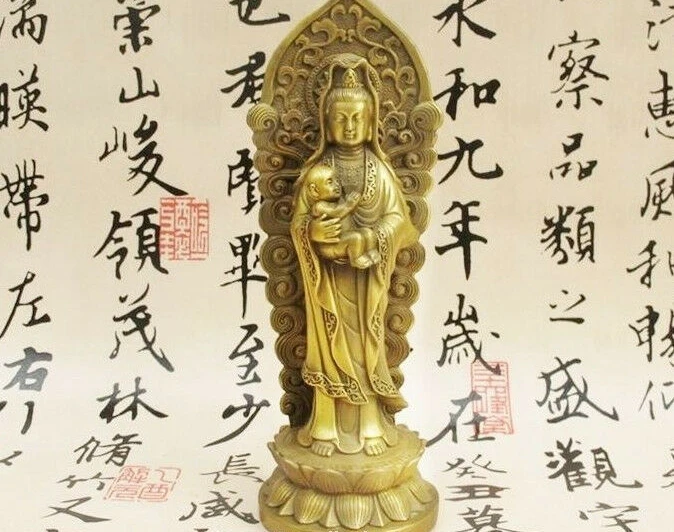 惠風和暢仰
察品類之盛觀
永和九年歲在癸丑
羣賢畢至少長咸
崇山峻領茂林脩竹又
湍暎帶左右